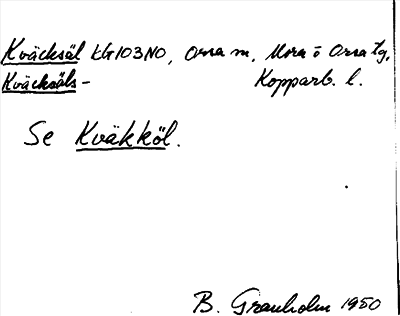 Kväcksäl LG103NO, Orsa sn, Mora o Orsa tg,
Kväcksäls- Kopparb. l.
Se Kväkköl.
B. Granholm 1950